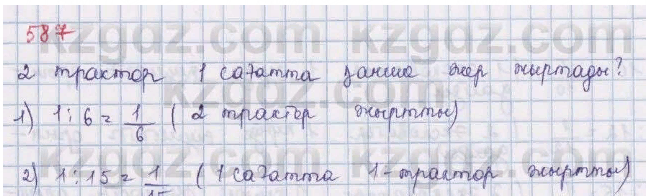 587
2 трактор 1 сағатта қанша жер жыртады?
1) 1:6 = 1/6 (2 трактор жыртты)
2) 1:15 = 1/15 (1 сағатта 1-трактор жыртты)
kzgdz.com